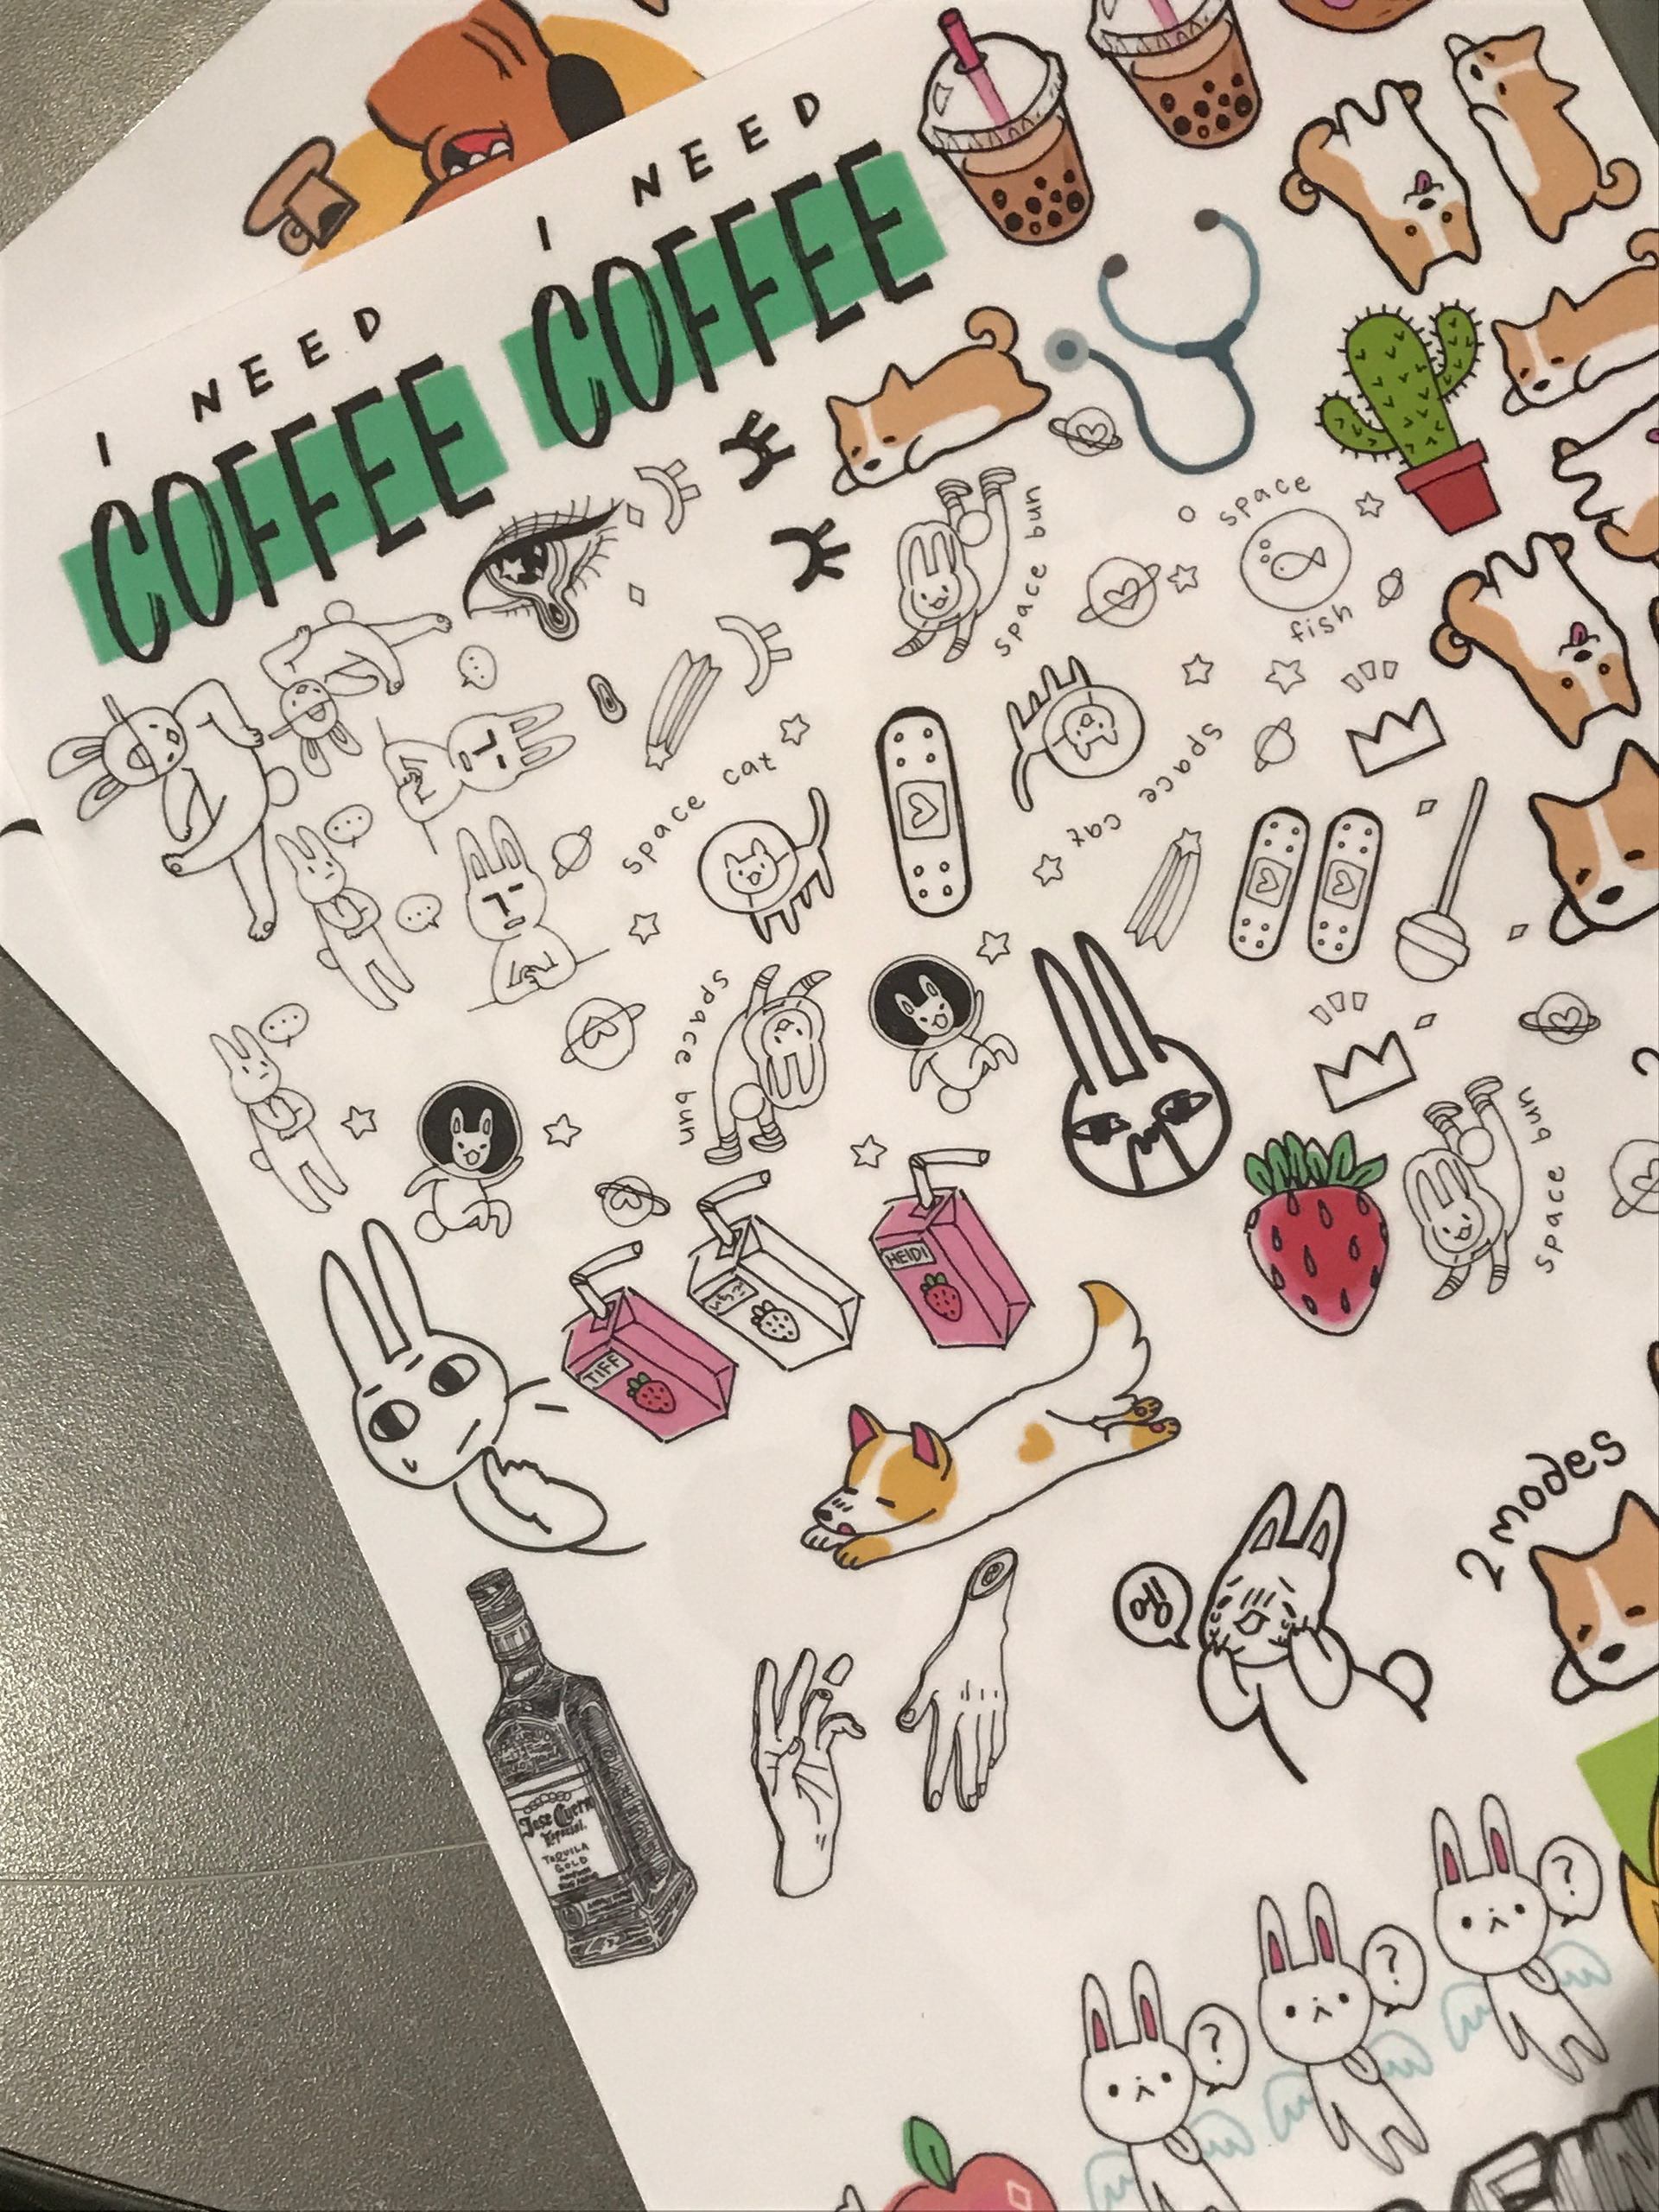 I NEED
COFFEE
I NEED
COFFEE
space bun
space
fish
space cat
space cat
space bun
space bun
HEIDI
TIFF
2 modes
Jose Cuervo
Especial
TEQUILA
GOLD
?
?
?